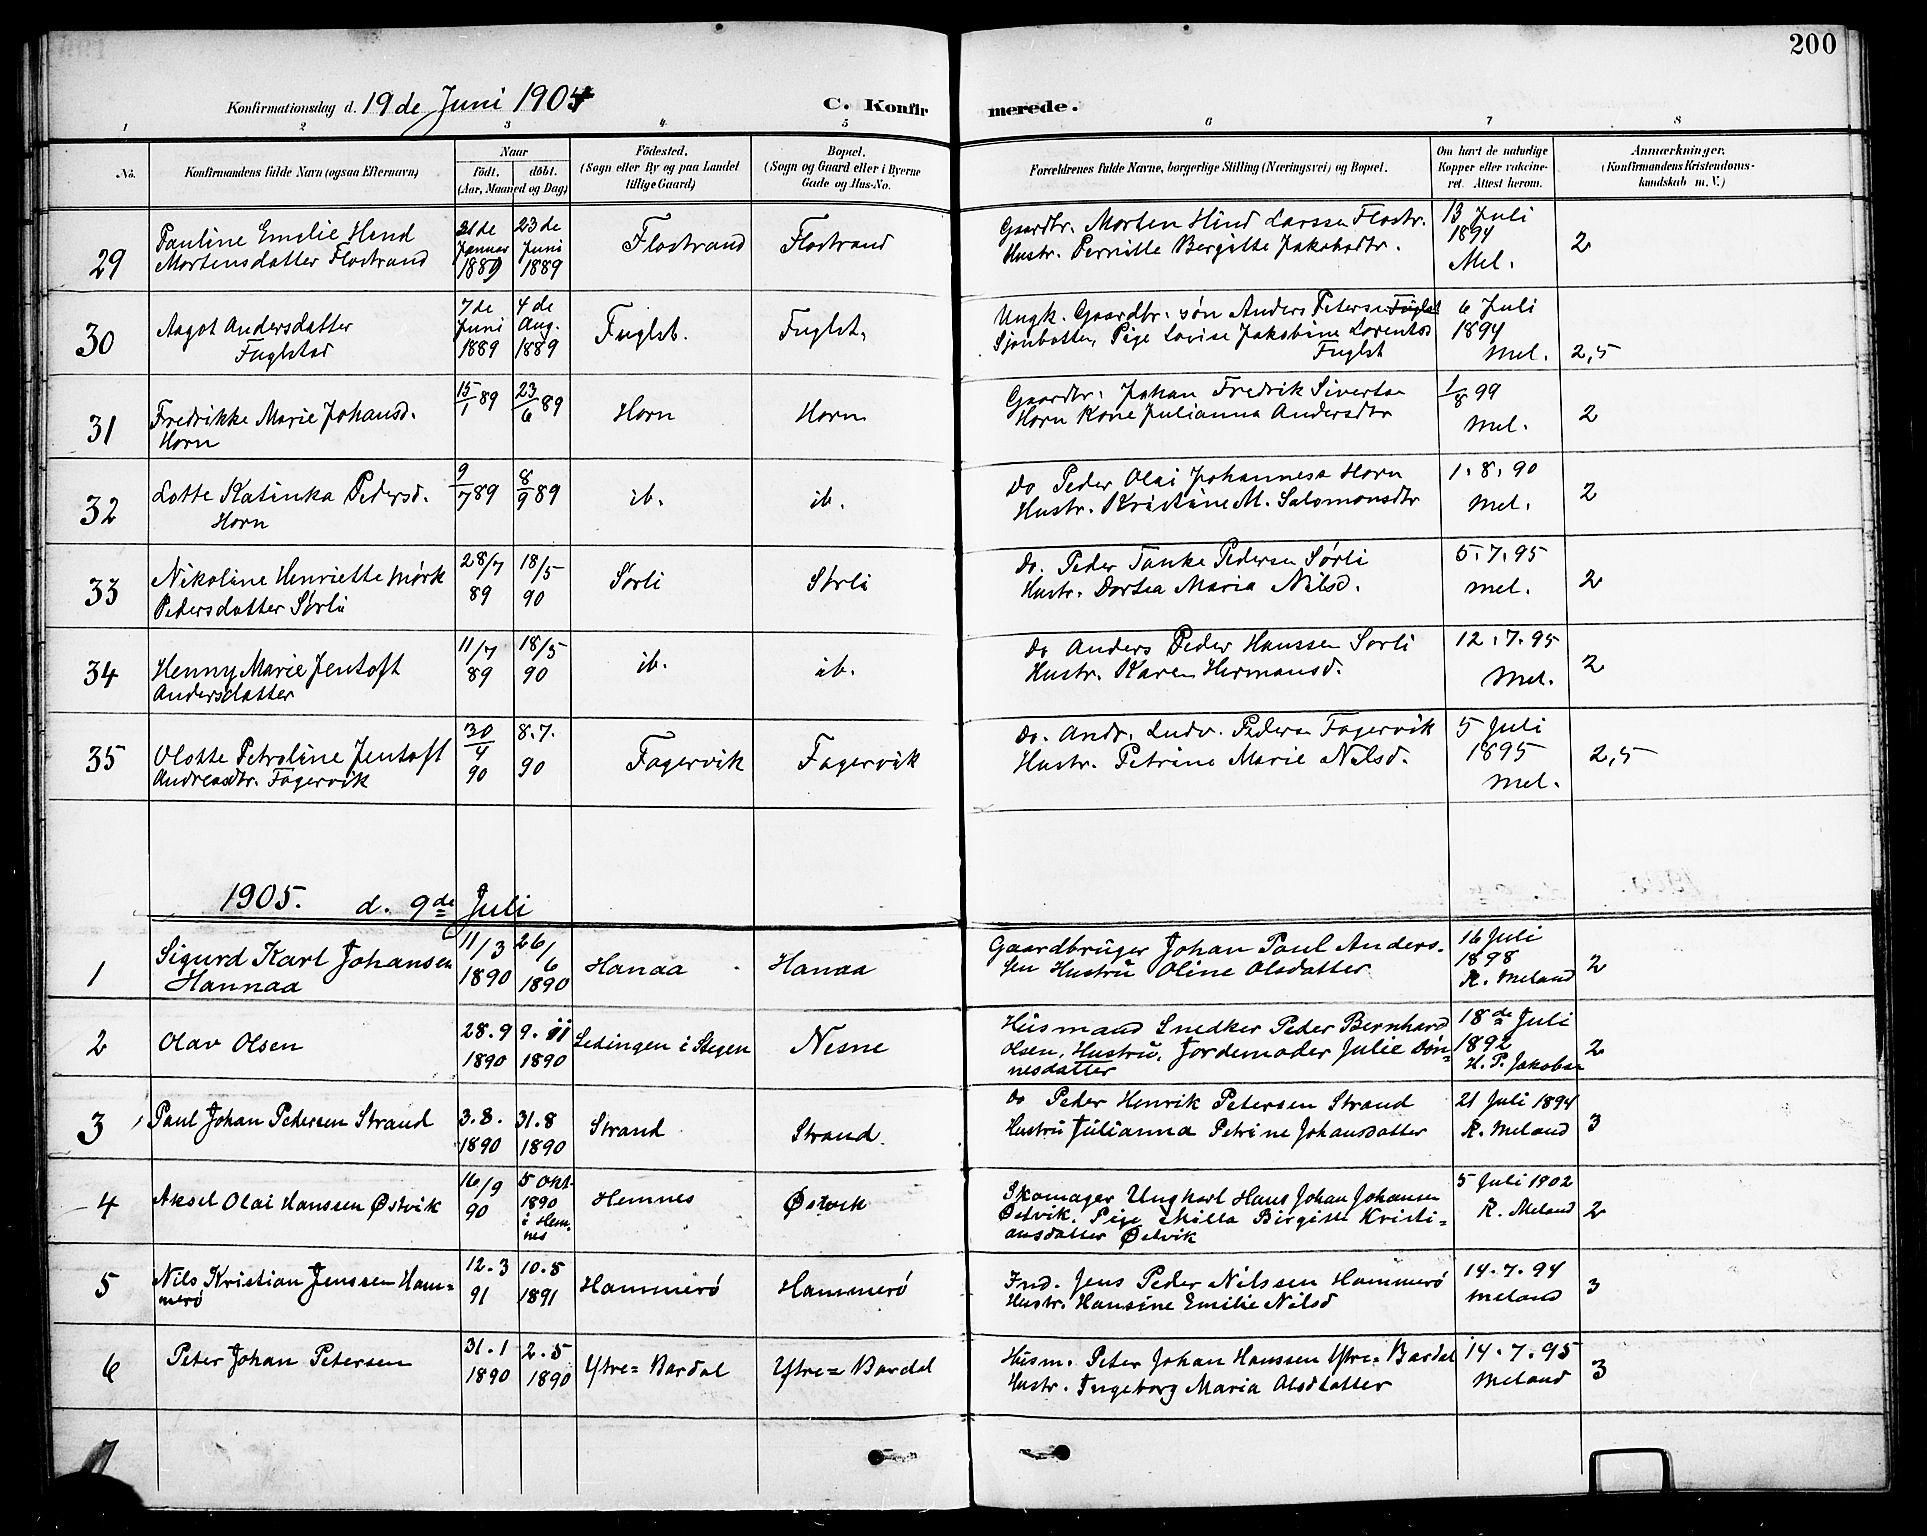 200
Konfirmationsdag d. 19 de Juni 1904
C. Konfirmerede.
1 2 3 4 5 6 7 8
No.
Konfirmandens fulde Navn (ogsaa Efternavn)
Naar
födt. döbt.
(Aar, Maaned og Dag)
Födested.
(Sogn eller By og paa Landet
tillige Gaard)
Bopæl.
(Sogn og Gaard eller i Byerne
Gade og Hus-No.
Forældrenes fulde Navne, borgerlige Stilling (Næringsvei) og Bopæl.
Om havt de naturlige
Kopper eller vakcine-
ret. Attest herom.
Anmærkninger.
(Konfirmandens Kristendoms-
kundskab m. V.)
29
Pauline Emelie Hind
Mortensdatter Flostrand
21de
Januar
1889
23 de
Juni
1889
Flostrand
Flostrand
Gaardbr. Morten Hind Larssen Flostr.
Hustr. Pernille Bergitte Jakobsdtr.
13 Juli
1894
Mel.
2
30
Aagot Andersdatter
Fuglstad
7 de
Juni
1889
4 de
Aug.
1889
Fuglst.
Fuglst.
Ungk. Gaardbr. søn Anders Peterse Fuglst
Sjonbotten, Pige Lovise Jakobine Lorentsd
Fuglst
6 Juli
1894
Mel.
2,5
31
Fredrikke Marie Johansd.
Horn
15/1 89
23/6 89
Horn
Horn
Gaardbr. Johan Fredrik Sivertse
Horn Kone Julianna Andersdtr
1/8 99
Mel.
2
32
Lotte Katinka Pedersd.
Horn
9/7 89
8/9 89
ib.
ib.
do Peder Olai Johannesse Horn
Hustr. Kristine M. Salomonsdtr
1. 8. 90
Mel.
2
33
Nikoline Henriette Mørk
Pedersdatter Sørli
28/7
89
18/5
90
Sørli
Sørli
do. Peder Tanke Pedersen Sørli
Hustr. Dortea Maria Nilsd.
5. 7. 95
mel.
2
34
Henny Marie Jentoft
Andersdatter
11/7
89
18/5
90
ib.
ib.
do Anders Peder Hanssen Sørli
Hustr. Karen Hermansd.
12. 7. 95
Mel.
2
35
Olotte Petroline Jentoft
Andreasdtr. Fagervik
30/4
90
8. 7.
90
Fagervik
Fagervik
do. Andr. Ludv. Pederse Fagervik
Hustr. Petrine Marie Nilsd.
5 Juli
1895
Mel.
2,5
1905. d. 9de Juli
1
Sigurd Karl Johansen
Hannaa
11/3
1890
26/6
1890
Hanaa
Hanaa
Gaardbruger Johan Paul Anders-
sen Hustru Oline Olsdatter
16 Juli
1898
R. Meland
2
2
Olav Olsen
28. 9
1890
9. 11
1890
Lødingen i Stegen
Nesne
Husmand Snedker Peder Bernhard
Olsen, Hustru, Jordemoder Julie Døn=
nesdatter
18de Juli
1892
H. P. Jakobse
2
3
Paul Johan Pedersen Strand
3. 8.
1890
31. 8
1890
Strand
Strand.
do Peder Henrik Petersen Strand
Hustru Julianna Petrine Johansdatter
21 Juli 1894
R. Meland
3
4
Aksel Olai Hanssen Østvik
16/9
90
5 Okt
1890
i Hem-
nes
Hemnes
Østvik
Skomager Ungkarl Hans Johan Johansen
Østvik. Pige Milla Birgitte Kristi=
ansdatter Østvik
5 Juli 1902
R. Meland
2
5
Nils Kristian Jenssen Ham=
merø
12. 3
91
10. 5
1891
Hammerø
Hammerø
Ind. Jens Peder Nilssen Hammerø
Hustr. Hansine Emilie Nilsd
14. 7. 94
Meland
3
6
Peter Johan Petersen
31. 1
1890
2. 5
1890
Ytre= Bardal
Ytre= Bardal
Husm. Peter Johan Hanssen Ytre= Bardal
Hustr. Ingeborg Maria Olsdatter
14. 7. 95
Meland
3
7